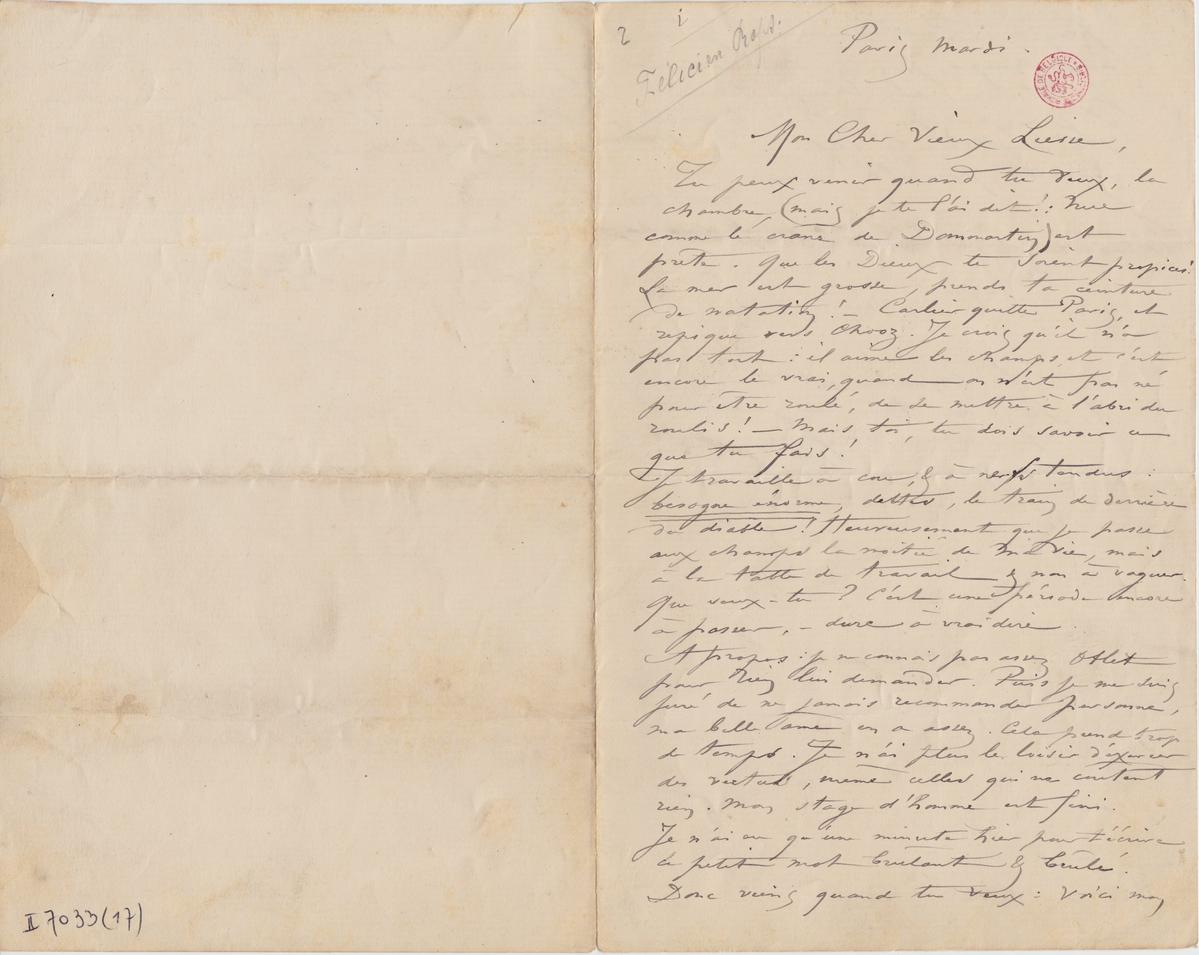 2 i
Félicien Rops.
Paris mardi.
Mon Cher Vieux Liesse,
Tu peux venir quand tu veux, la
chambre, (mais je te l'ai dit!: nue
comme le crâne de Dommartin) est
prête. Que les Dieux te soient propices!
La mer est grosse, prends ta ceinture
de natation! — Carlier quitte Paris, et
repique vers Chooz. Je crois qu'il n'a
pas tort: il aime les champs, et c'est
encore le vrai, quand on n'est pas né
pour être roulé, de se mettre à l'abri du
roulis! — Mais toi, tu dois savoir ce
que tu fais!
Je travaille à cou, & à nerfs tendus:
besogne énorme, dettes, le train de derrière
du diable! Heureusement que je passe
aux champs la moitié de ma vie, mais
à la table de travail & non à vaguer.
Que veux-tu? C'est une période encore
à passer, — dure à vrai dire.
A propos: je ne connais pas assez Otlet
pour rien lui demander. Puis je me suis
juré de ne jamais recommander personne,
ma belle âme en a assez. Cela prend trop
de temps. Je n'ai plus le loisir d'exercer
des vertus, même celles qui ne coutent
rien. Mon stage d'homme est fini.
Je n'ai eu qu'une minute hier pour t'écrire
ce petit mot brulant & brulé.
Donc viens quand tu veux: Voici mon
II 7033(17)